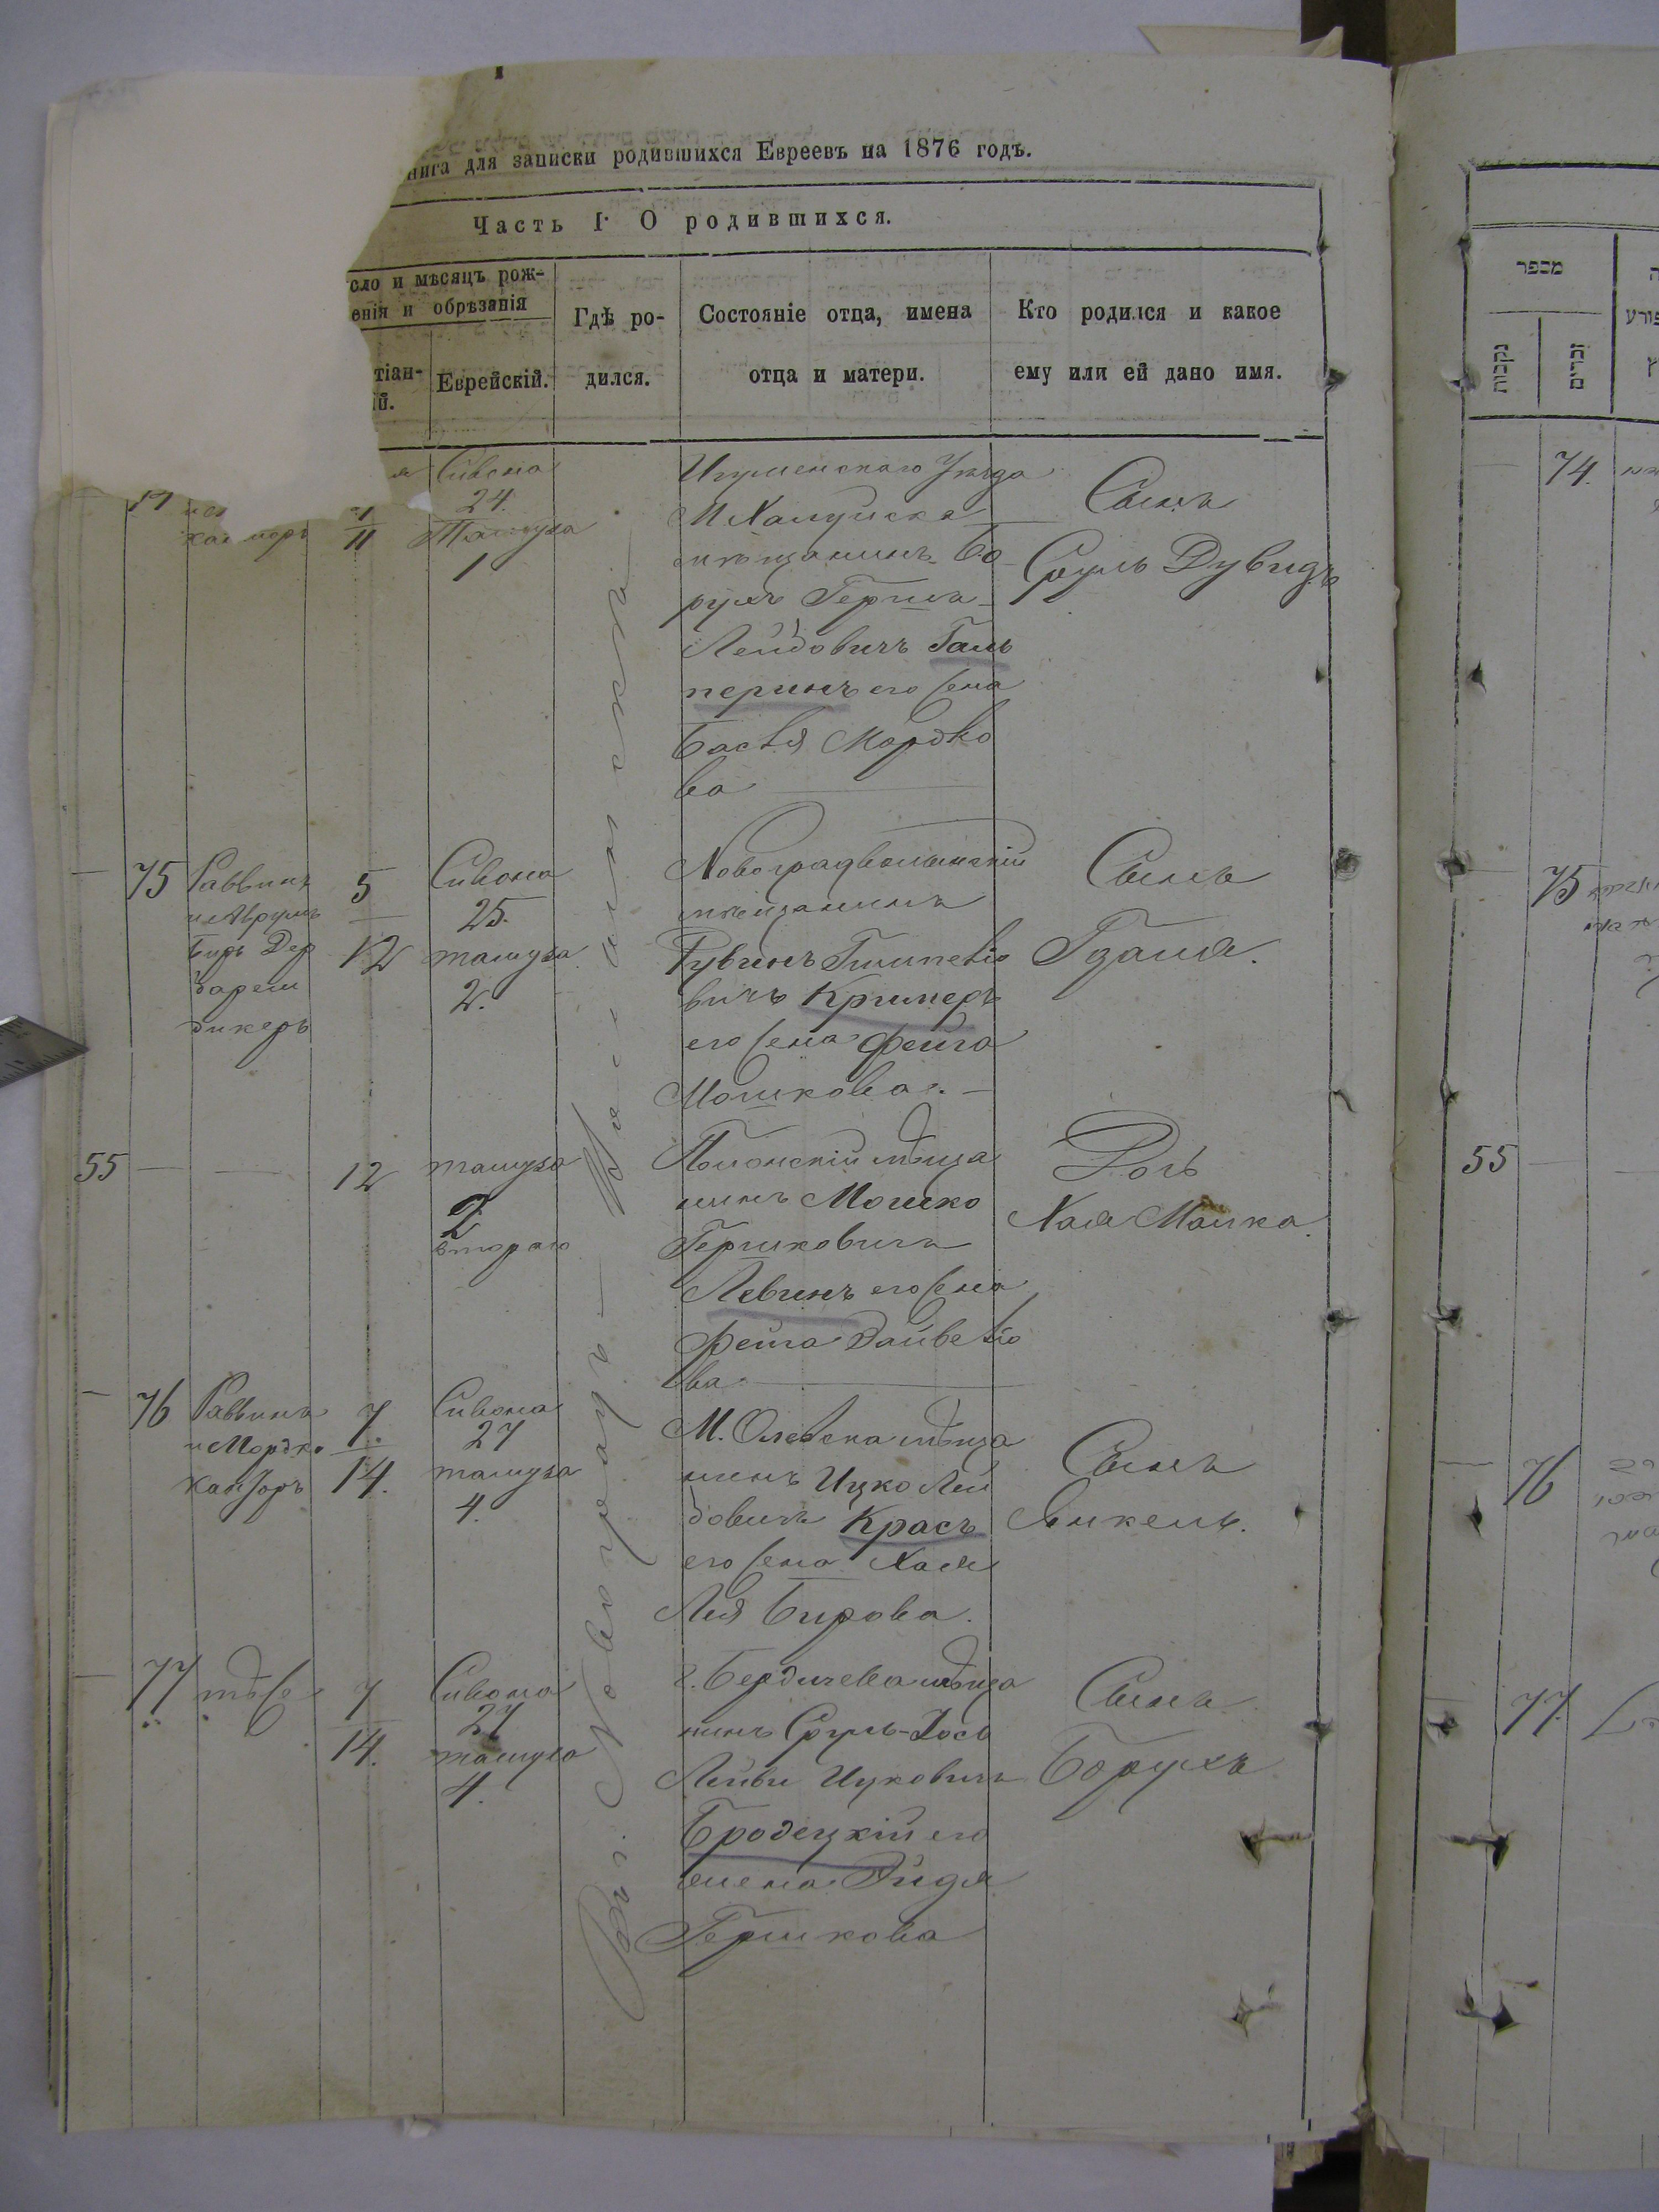 нига для записки родившихся Евреевъ на 1876 годъ.
Часть I. О родившихся.
сло и мѣсяцъ рож-
енія и обрѣзанія
тіан-
ій.
Еврейскій.
Гдѣ ро-
дился.
Состояніе отца, имена
отца и матери.
Кто родился и какое
ему или ей дано имя.
Сивона
24.
Тамуза
1
11
Игуменскаго Уѣзда
М
мѣщанинъ Бо
рухъ Гершъ
Лейбовичъ Галь
перинъ его жена
Бася Мордко
ва
Сынъ
Сруль Дувидъ
75
Раввинъ
и Аврумъ
Беръ Дер
барем
дикеръ
5
12
Сивона
25.
тамуза
2.
Новоградволынскій
мѣщанинъ
Рувинъ
вичъ Кримеръ
его жена Фейга
Мошкова.
Сынъ
Гдаля.
55
12
тамуза
2
втораго
Полонскій мѣща
нинъ Мошко
Гершковичъ
Левинъ его жена
Фейга
ва
Дочь
Хая Малка
76
Раввинъ
и Мордко
Канторъ
7.
14.
Сивона
27
тамуза
4.
М. Олевска мѣща
нинъ Ицко Лей
бовичъ Красъ
его жена Хая
Лея Берова.
Сынъ
Янкель.
77
7
14.
Сивона
27
тамуза
4.
г. Бердичева мѣща
нинъ Сруль-Іось
Лейби Ицковичъ
Бродецкій его
жена
Гершкова
Сынъ
Борухъ
Новоградъ-Волынскъ
מספר
נקבות
זכרים
74.
75
55
76
77.